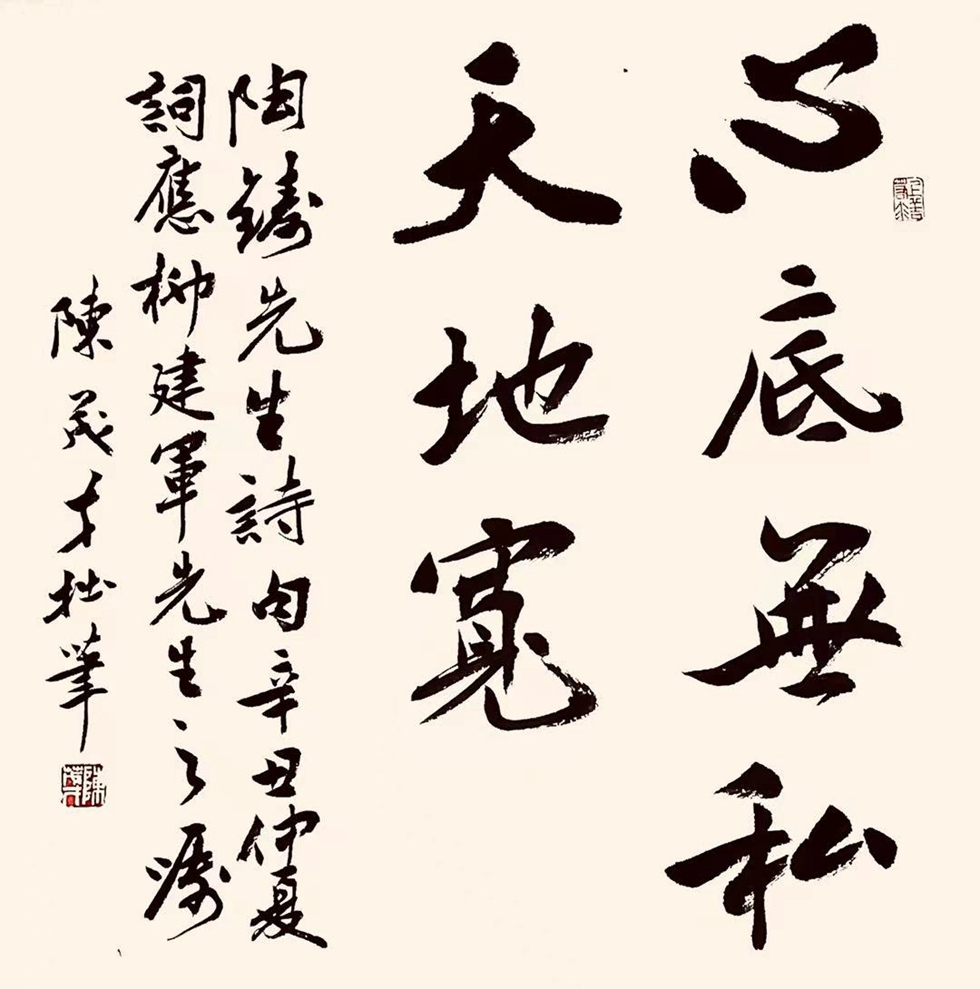 心底無私
天地寬
陶鑄先生詩句辛丑仲夏
詞應柳建軍先生之囑
陳茂才拙筆